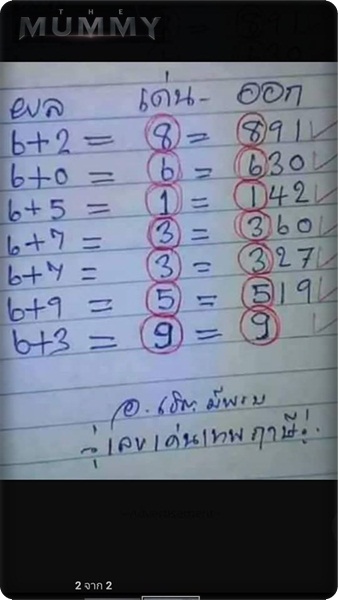 THE
MUMMY
ผล เด่น - ออก
6+2 = 8 = 891 ✓
6+0 = 6 = 630 ✓
6+5 = 1 = 142 ✓
6+7 = 3 = 360 ✓
6+7 = 3 = 327 ✓
6+9 = 5 = 519 ✓
6+3 = 9 = 9 ✓
อ.
เลขเด่นเทพฤาษี
2 จาก 2